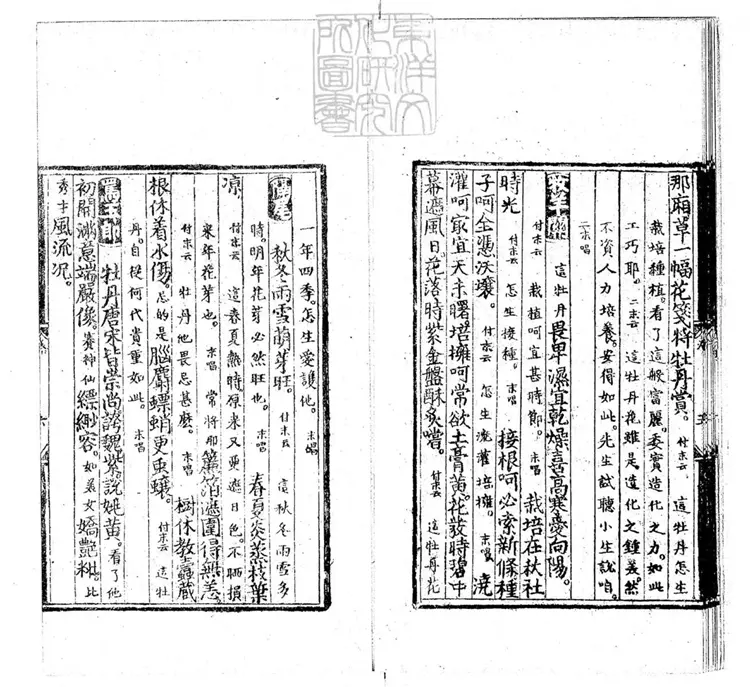 那廂草一幅花箋將牡丹賞。付末云 這牡丹怎生
栽培種植。看了這般富麗。委實造化之力。如此
工巧耶。二末云 這牡丹花雖是造化之鍾美。然
不資人力培養。安得如此。先生試聽小生說咱。
二末唱
這牡丹畏卑濕宜乾燥喜高寒憂向陽。
付末云 栽植呵宜甚時節。末唱 栽培在秋社
時光 付末云 怎生接種。末唱 接根呵必索新條種
子呵全憑沃壤。付末云 怎生澆灌培擁。末唱 澆
灌呵家宜天未曙培擁呵常欲土膏黃。花發時碧巾
幕遮風日。花落時紫金盤酥炙嚐。付末云 這牡丹花
一年四季。怎生愛護他。末唱
秋冬雨雪萌芽旺。付末云 這秋冬雨雪多
時。明年花芽必然旺也。末唱 春夏炎蒸枝葉
凉。付末云 這春夏熱時原來又更遮日色。不晒損
來年花芽也。末唱 常將那簾箔遮圍得無恙
付末云 牡丹他畏忌甚麼。末唱 樹休教蠹藏
根休着水傷。忌的是腦麝螵蛸更虫蟻。付末云 這牡
丹。自從何代貴重如此。末唱
牡丹唐宋皆崇尚誇魏紫說姚黃。看了他
初開滿意端嚴像。賽神仙縹緲容。如美女嬌艷粧。比
秀才風流况。
東洋文
化研究
所圖書